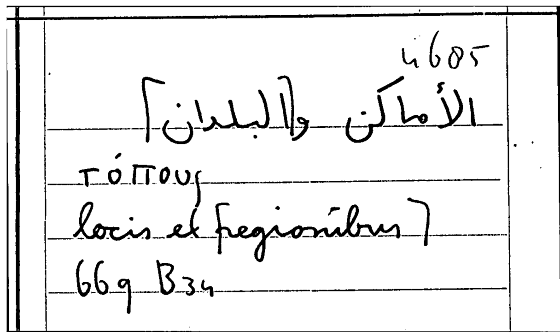 4685
الأماكن و[البلدان]
τόπους
locis et [regionibus]
669 B34